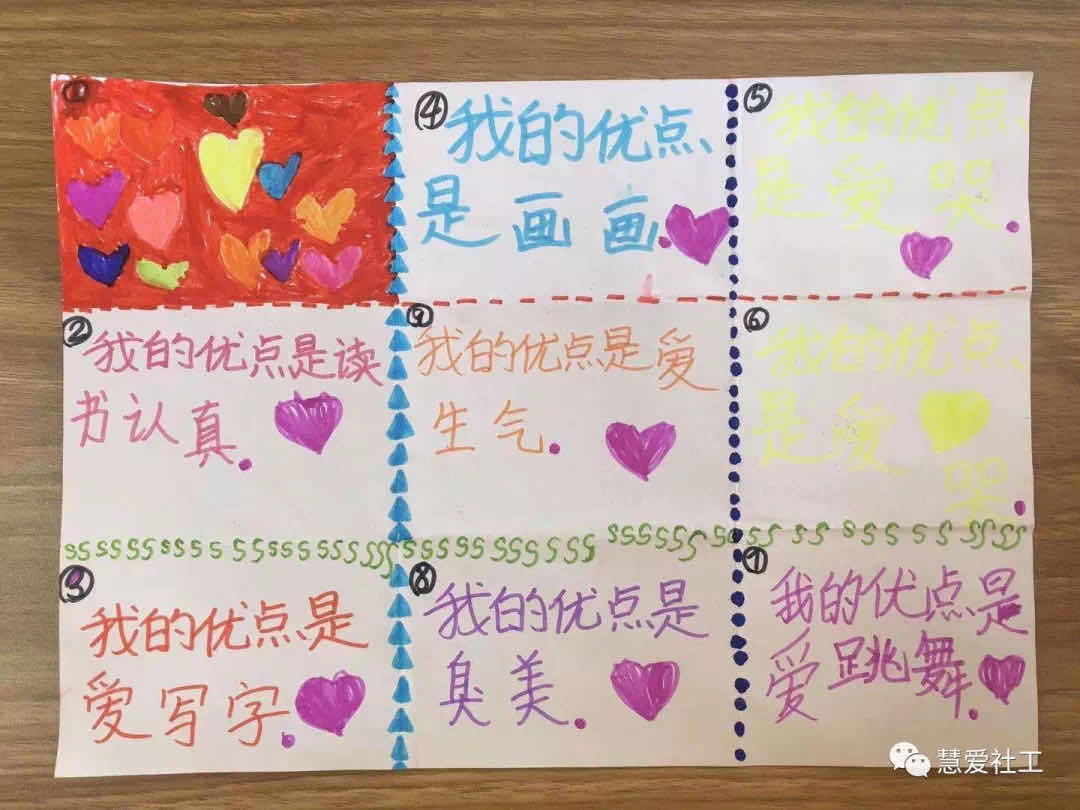 ①
④ 我的优点
是画画.
⑤ 我的优点
是爱哭.
② 我的优点是读
书认真.
⑨ 我的优点是爱
生气.
⑥ 我的优点
是爱
哭.
③ 我的优点是
爱写字.
⑧ 我的优点是
臭美.
⑦ 我的优点是
爱跳舞.
慧爱社工